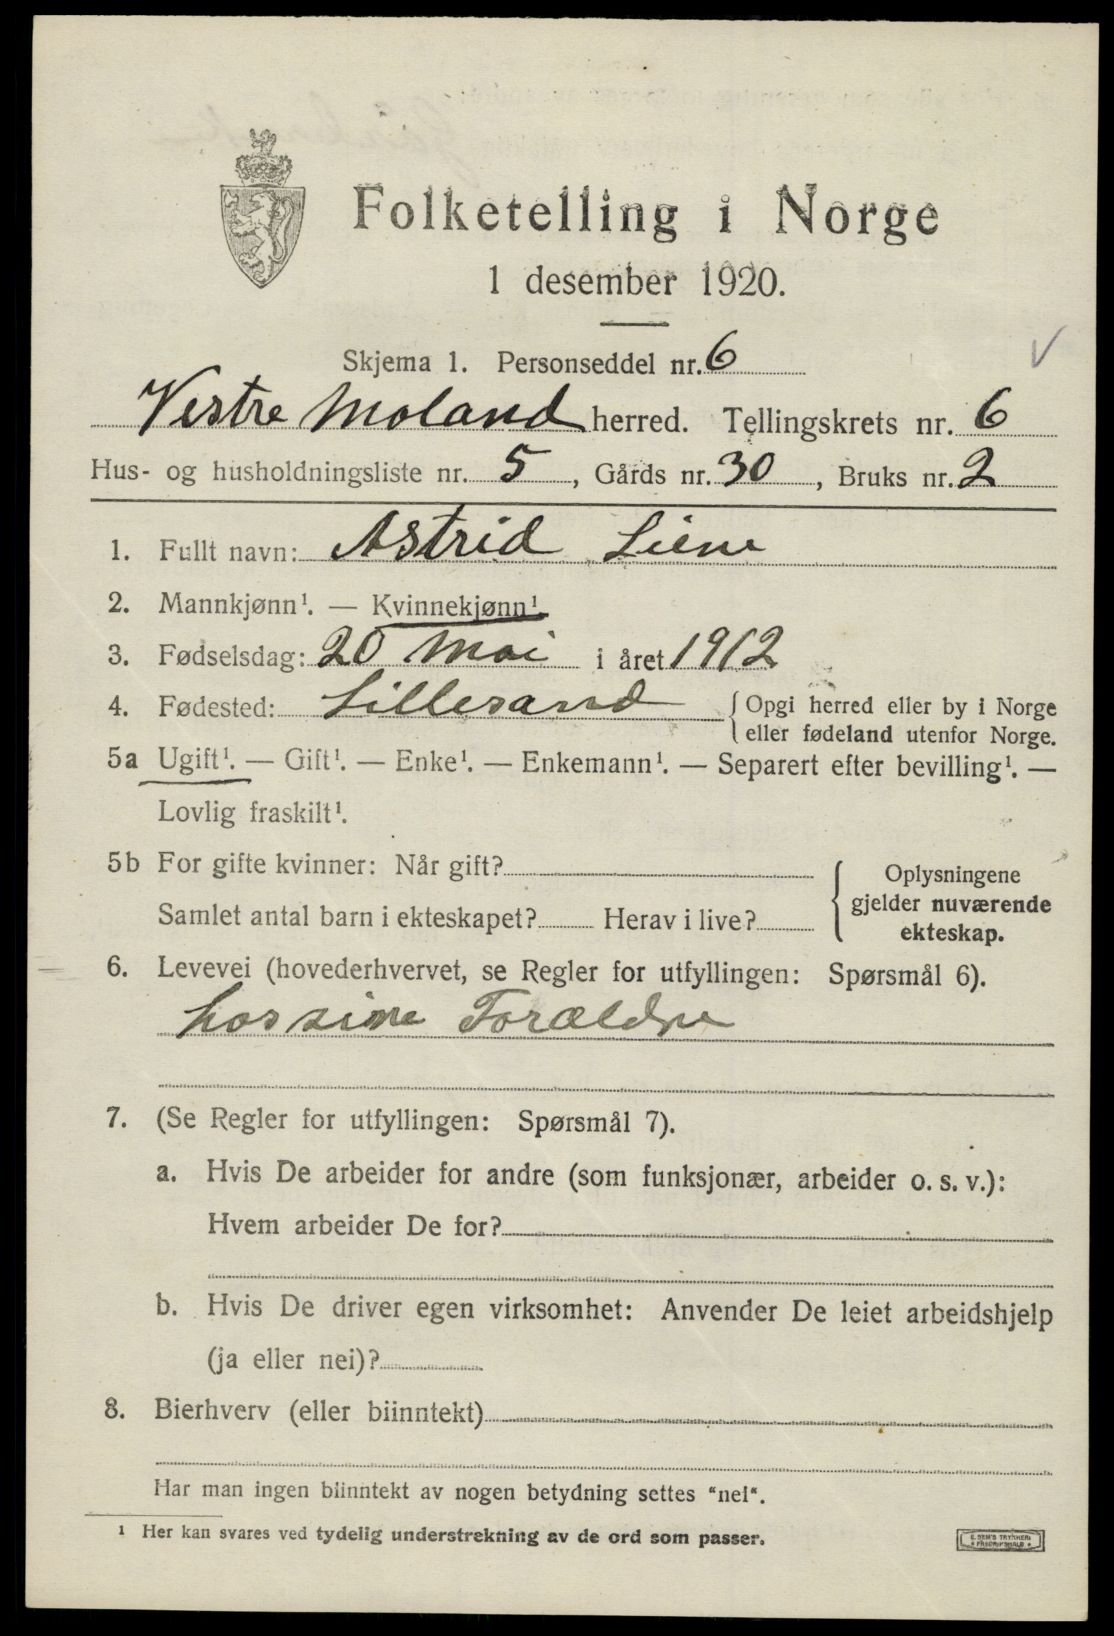 Folketelling i Norge
1 desember 1920.
Skjema 1. Personseddel nr. 6
Vestre Moland herred. Tellingskrets nr. 6
Hus- og husholdningsliste nr. 5, Gårds nr. 30, Bruks nr. 2
1. Fullt navn: Astrid Liene
2. Mannkjønn¹. — Kvinnekjønn¹.
3. Fødselsdag: 20 Mai i året 1912
4. Fødested: Lillesand {Opgi herred eller by i Norge
eller fødeland utenfor Norge.
5a Ugift¹. — Gift¹. — Enke¹. — Enkemann¹. — Separert efter bevilling¹. —
Lovlig fraskilt¹.
5b For gifte kvinner: Når gift?
Samlet antal barn i ekteskapet? Herav i live?
{Oplysningene
gjelder nuværende
ekteskap.
6. Levevei (hovederhvervet, se Regler for utfyllingen: Spørsmål 6).
hos sine Forældre
7. (Se Regler for utfyllingen: Spørsmål 7).
a. Hvis De arbeider for andre (som funksjonær, arbeider o. s. v.):
Hvem arbeider De for?
b. Hvis De driver egen virksomhet: Anvender De leiet arbeidshjelp
(ja eller nei)?
8. Bierhverv (eller biinntekt)
Har man ingen biinntekt av nogen betydning settes "nei".
¹ Her kan svares ved tydelig understrekning av de ord som passer.
E. SEM'S TRYKKERI
FREDRIKSHALD